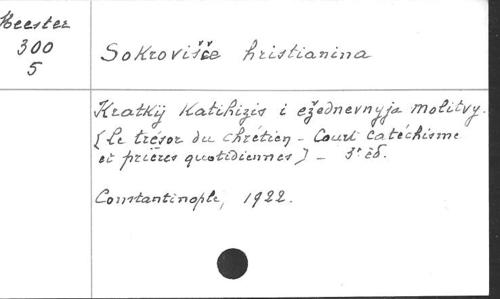 Meester
300
5
Sokrovišče hristianina
Kratkij Katihizis i ežednevnyja molitvy.
[Le trésor du chrétien - Court catéchisme
et prières quotidiennes] - 3e éd.
Constantinople, 1922.